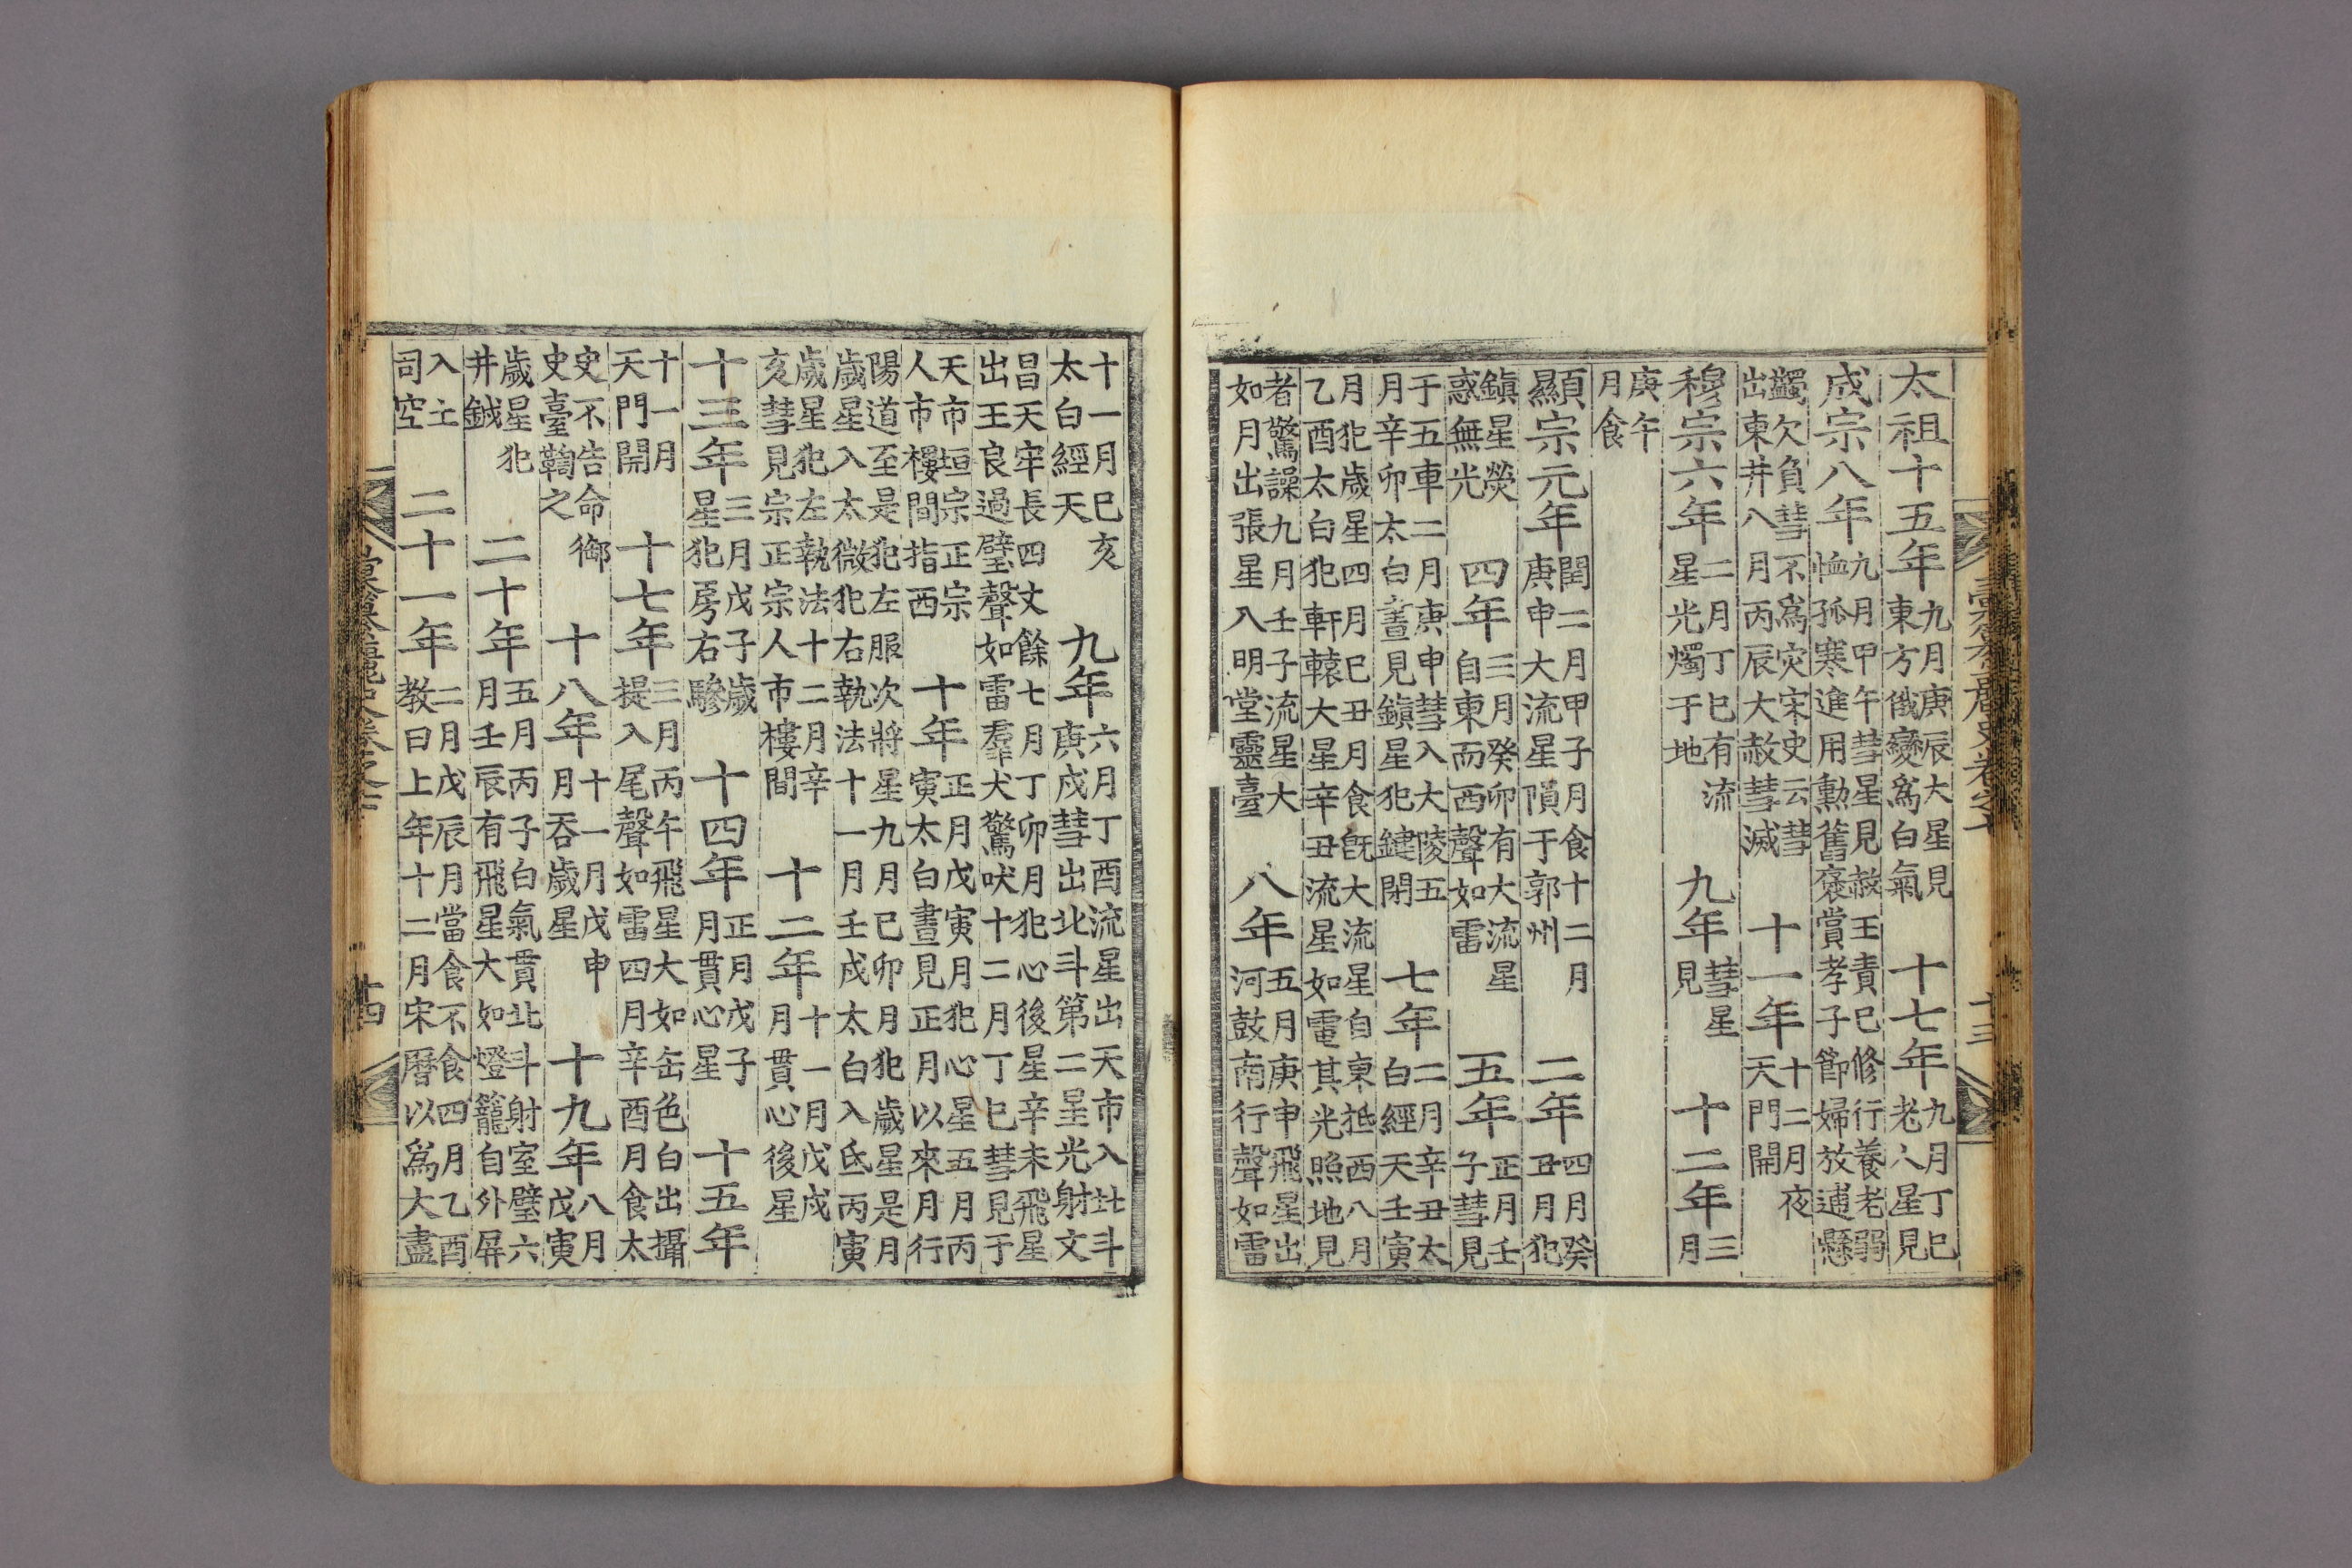 彙纂麗史卷之十 十三
太祖十五年 九月庚辰大星見東方俄變爲白氣 十七年 九月丁巳老人星見
成宗八年 九月甲午彗星見赦王責已修行養老弱恤孤寒進用勳舊褒賞孝子節婦放逋懸
蠲欠負彗不爲灾宋史云彗出東井八月丙辰大赦彗滅 十一年 十二月夜天門開
穆宗六年 二月丁巳有流星光燭于地 九年 彗星見 十二年 三月
庚午月食
顯宗元年 閏二月甲子月食十二月庚申大流星隕于郭州 二年 四月癸丑月犯
鎭星熒惑無光 四年 三月癸卯有大流星自東而西聲如雷 五年 正月壬子彗見
于五車二月庚申彗入大陵五月辛卯太白晝見鎭星犯鍵閉 七年 二月辛丑太白經天壬寅
月犯歲星四月巳丑月食旣大流星自東抵西八月乙酉太白犯軒轅大星辛丑流星如電其光照地見
者驚譟九月壬子流星大如月出張星入明堂靈臺 八年 五月庚申飛星出河鼓南行聲如雷
十一月巳亥太白經天 九年 六月丁酉流星出天市入北斗庚戌彗出北斗第二星光射文
昌天牢長四丈餘七月丁卯月犯心後星辛未飛星出王良過壁聲如雷羣犬驚吠十二月丁巳彗見于
天市垣宗正宗人市樓間指西 十年 正月戊寅月犯心星五月丙寅太白晝見正月以來月行
陽道至是犯左服次將星九月巳卯月犯歲星是月歲星入太微犯右執法十一月壬戌太白入氐丙寅
歲星犯左執法十二月辛亥彗見宗正宗人市樓間 十二年 十一月戊戌月貫心後星
十三年 三月戊子歲星犯房右驂 十四年 正月戊子月貫心星 十五年
十一月天門開 十七年 三月丙午飛星大如缶色白出攝提入尾聲如雷四月辛酉月食太
史不告命御史臺鞫之 十八年 十一月戊申月呑歲星 十九年 八月戊寅
歲星犯井鉞 二十年 五月丙子白氣貫北斗射室壁六月壬辰有飛星大如燈籠自外屏
入土司空 二十一年 二月戊辰月當食不食四月乙酉教曰上年十二月宋曆以爲大盡
彙纂麗史卷之十 十四